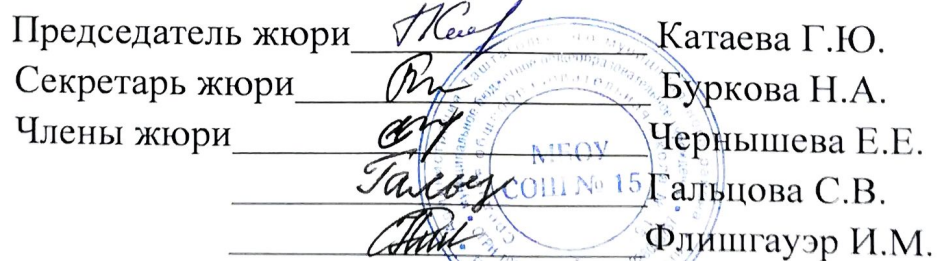 Председатель жюри Катаева Г.Ю.
Секретарь жюри Буркова Н.А.
Члены жюри Чернышева Е.Е.
Гальцова С.В.
Флишгауэр И.М.
МБОУ
СОШ № 15